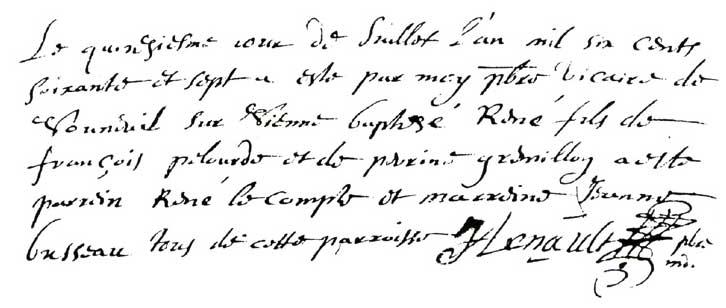 Le quinziesme iour de Juillet L'an mil six cents
soixante et sept a este par moy pbre Vicaire de
Vouneuil sur Vienne baptisé René fils de
françois pelourde et de perrine grenilloy a este
parrein René le compte et marreine Jeanne
busseau tous de cette parroisse JHenault pbre